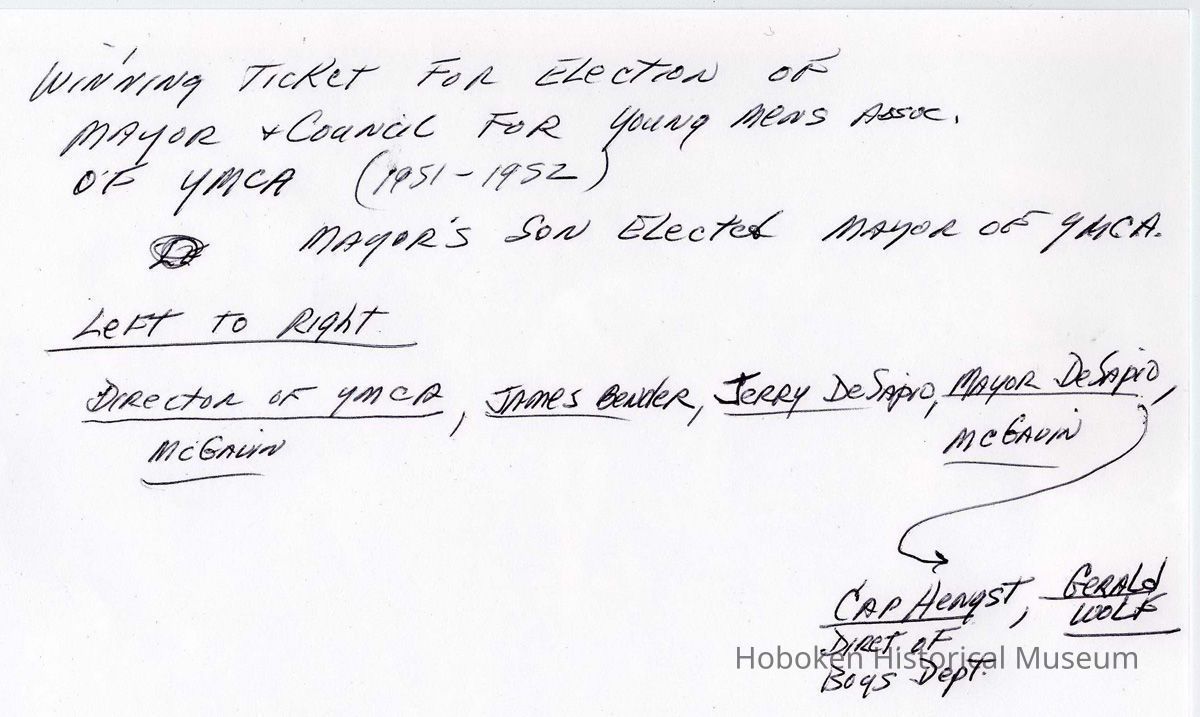 WINNING TICKET FOR ELECTION OF
MAYOR + COUNCIL FOR YOUNG MENS ASSOC.
OF YMCA (1951-1952)
MAYOR'S SON ELECTED MAYOR OF YMCA.
LEFT TO RIGHT
DIRECTOR OF YMCA, JAMES BENDER, JERRY DESAPIO, MAYOR DESAPIO,
MCGAVIN MCGAVIN
CAP HENGST, GERALD
WOLF
DIRET OF
BOYS DEPT.
Hoboken Historical Museum